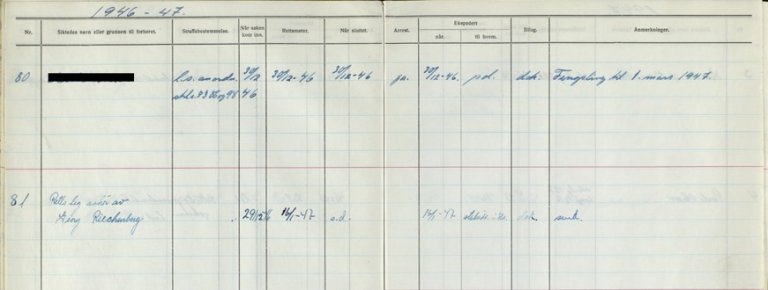 1946 - 47.
Nr. Siktedes navn eller grunnen til forhøret. Straffebestemmelse. Når saken kom inn. Rettsmøter. Når sluttet. Arrest. Ekspedert når. til hvem. Bilag. Anmerkninger.
80 30/12 46 30/12-46 30/12-46 ja. 30/12-46. pol. dok. Fengsling til 1. mars 1947.
81 Rettslig av
Georg Riechenberg 29/12 46 14/1-47 s.d. 14/1-47 dok